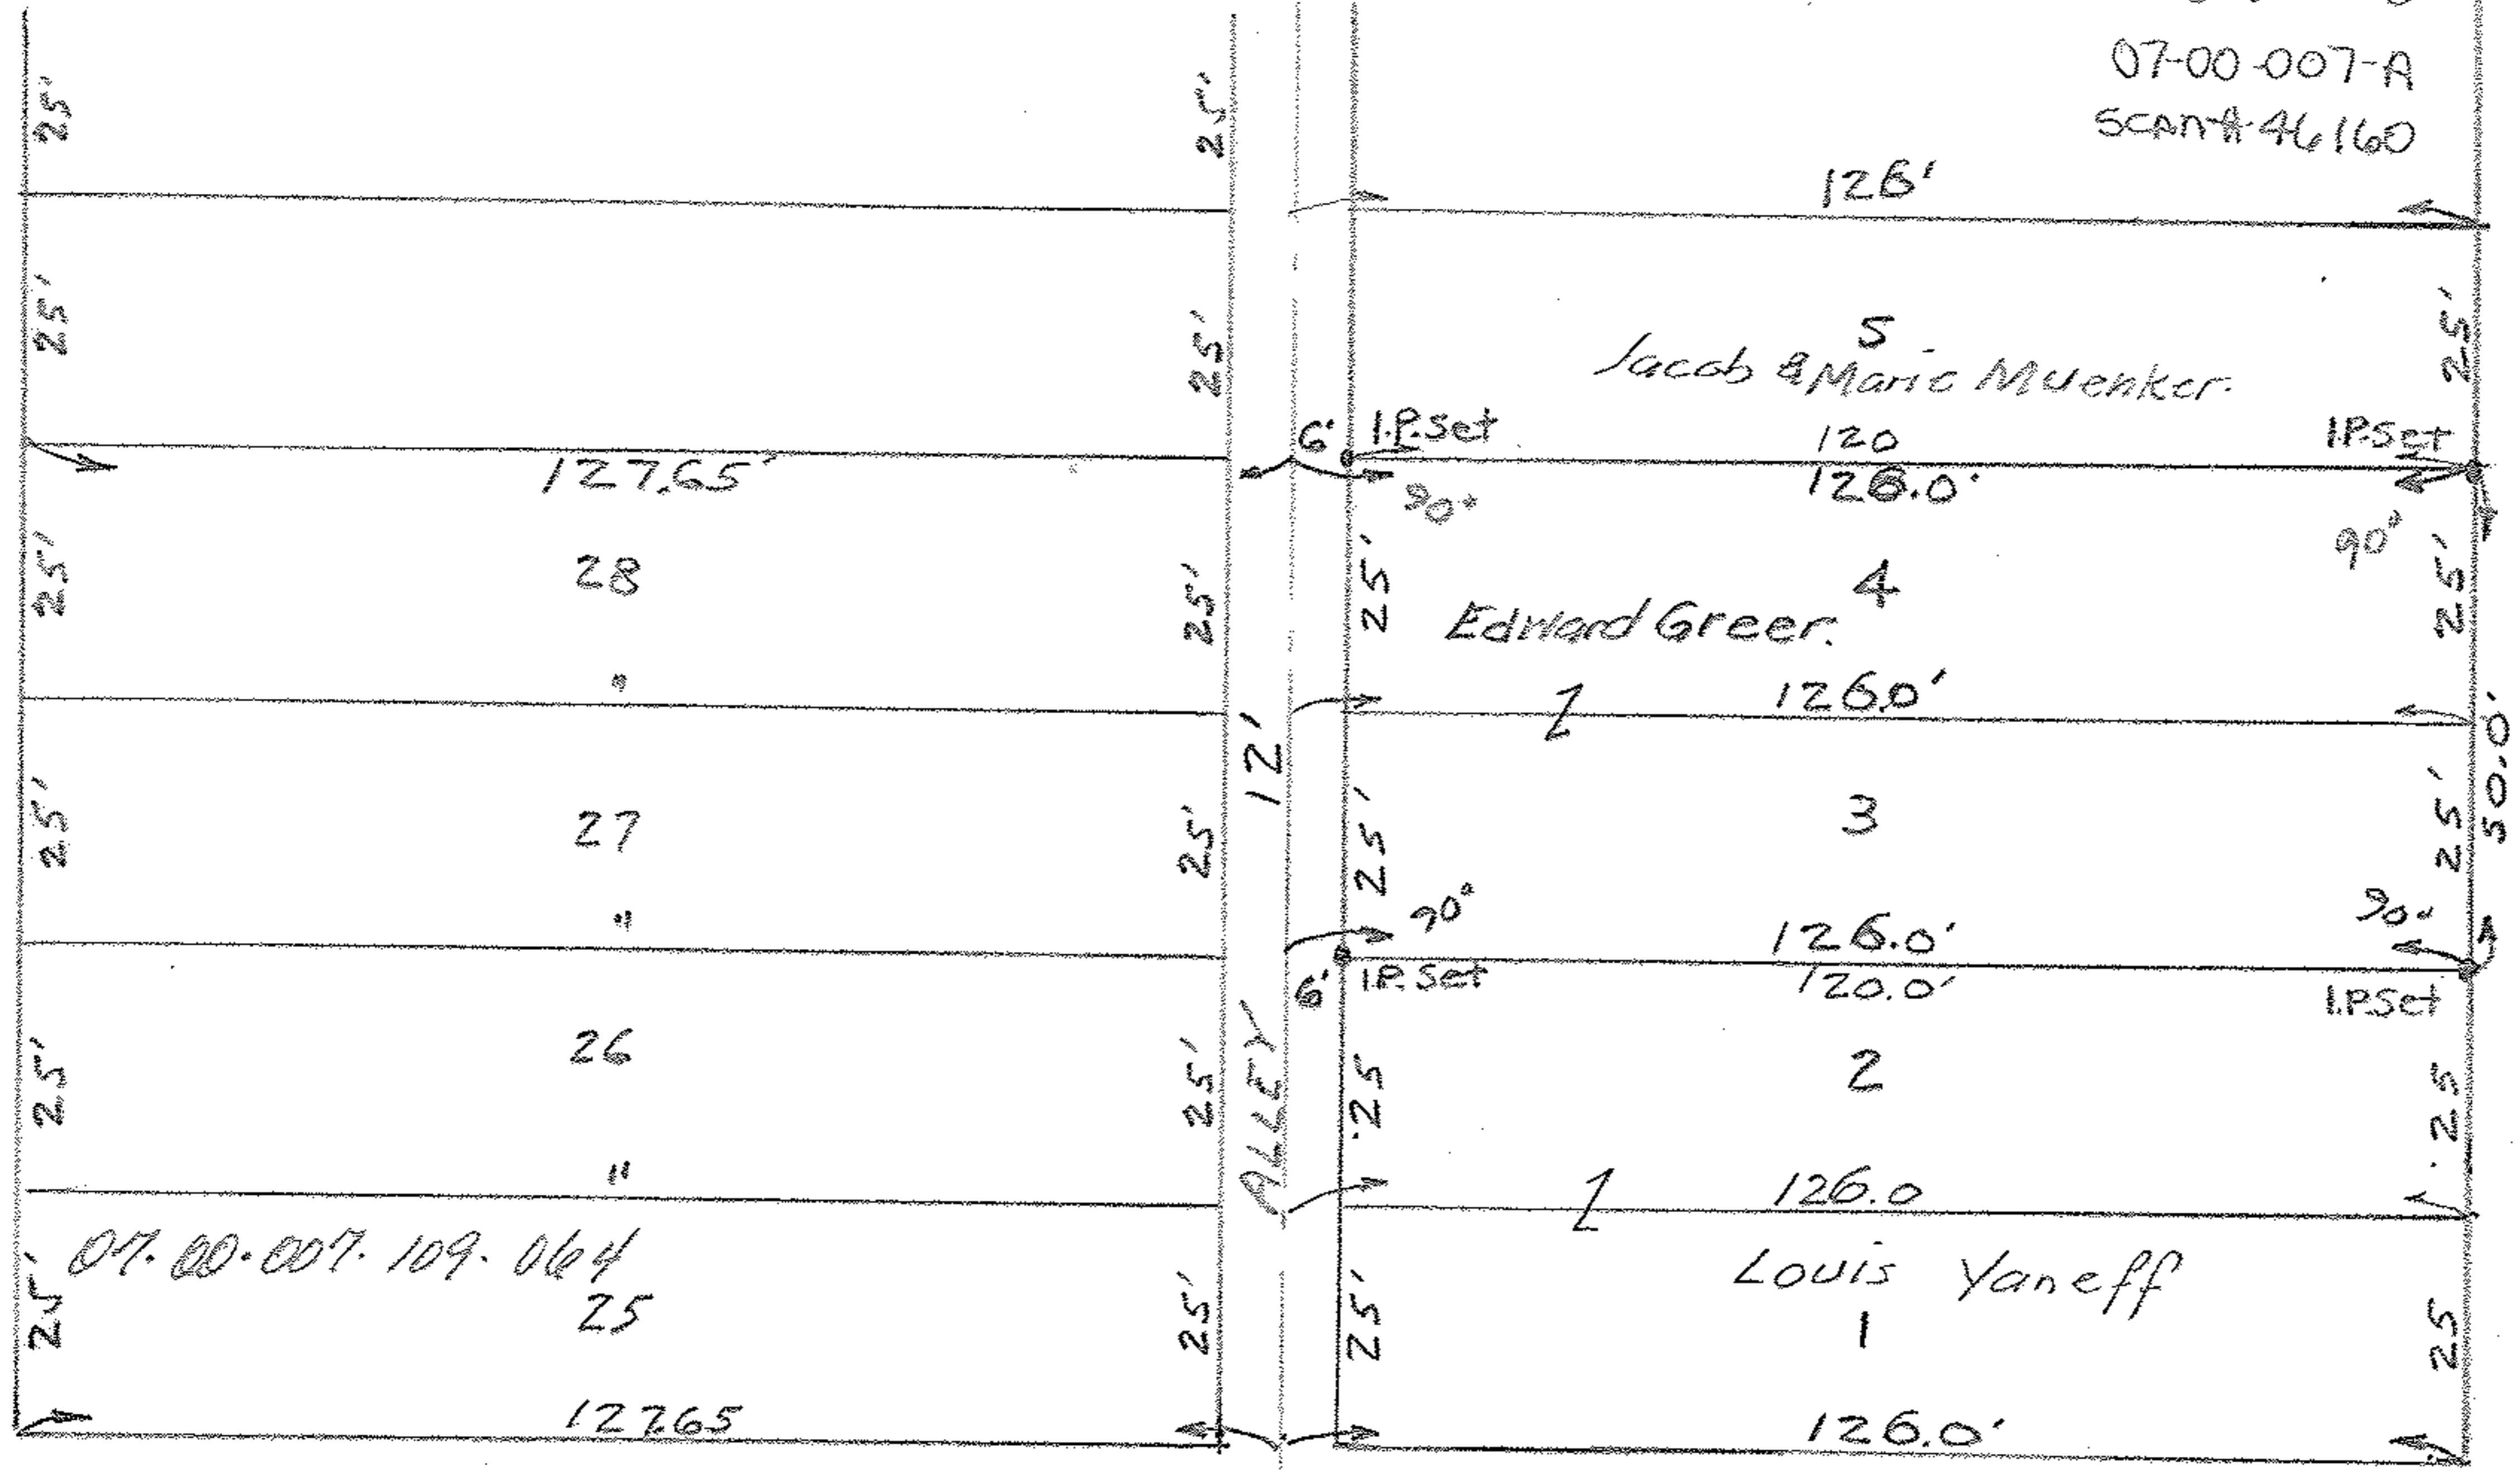 07-00-007-A
SCAN# 46160
25' 25' 126'
25' 25' 5 25'
Jacob & Marie Muenker.
6' I.P. Set 120 I.P. Set
127.65' 90° 126.0' 90°
25' 28 25' 25' 4 25'
Edward Greer.
" 126.0'
12' 50.0'
25' 27 25' 25' 3 25'
" 90° 126.0' 90°
6' I.P. Set 120.0' I.P. Set
25' 26 25' 25 2 25
ALLEY
" 126.0
07.00.007.109.064
Louis Yaneff
25' 25 25' 25' 1 25
127.65 126.0'